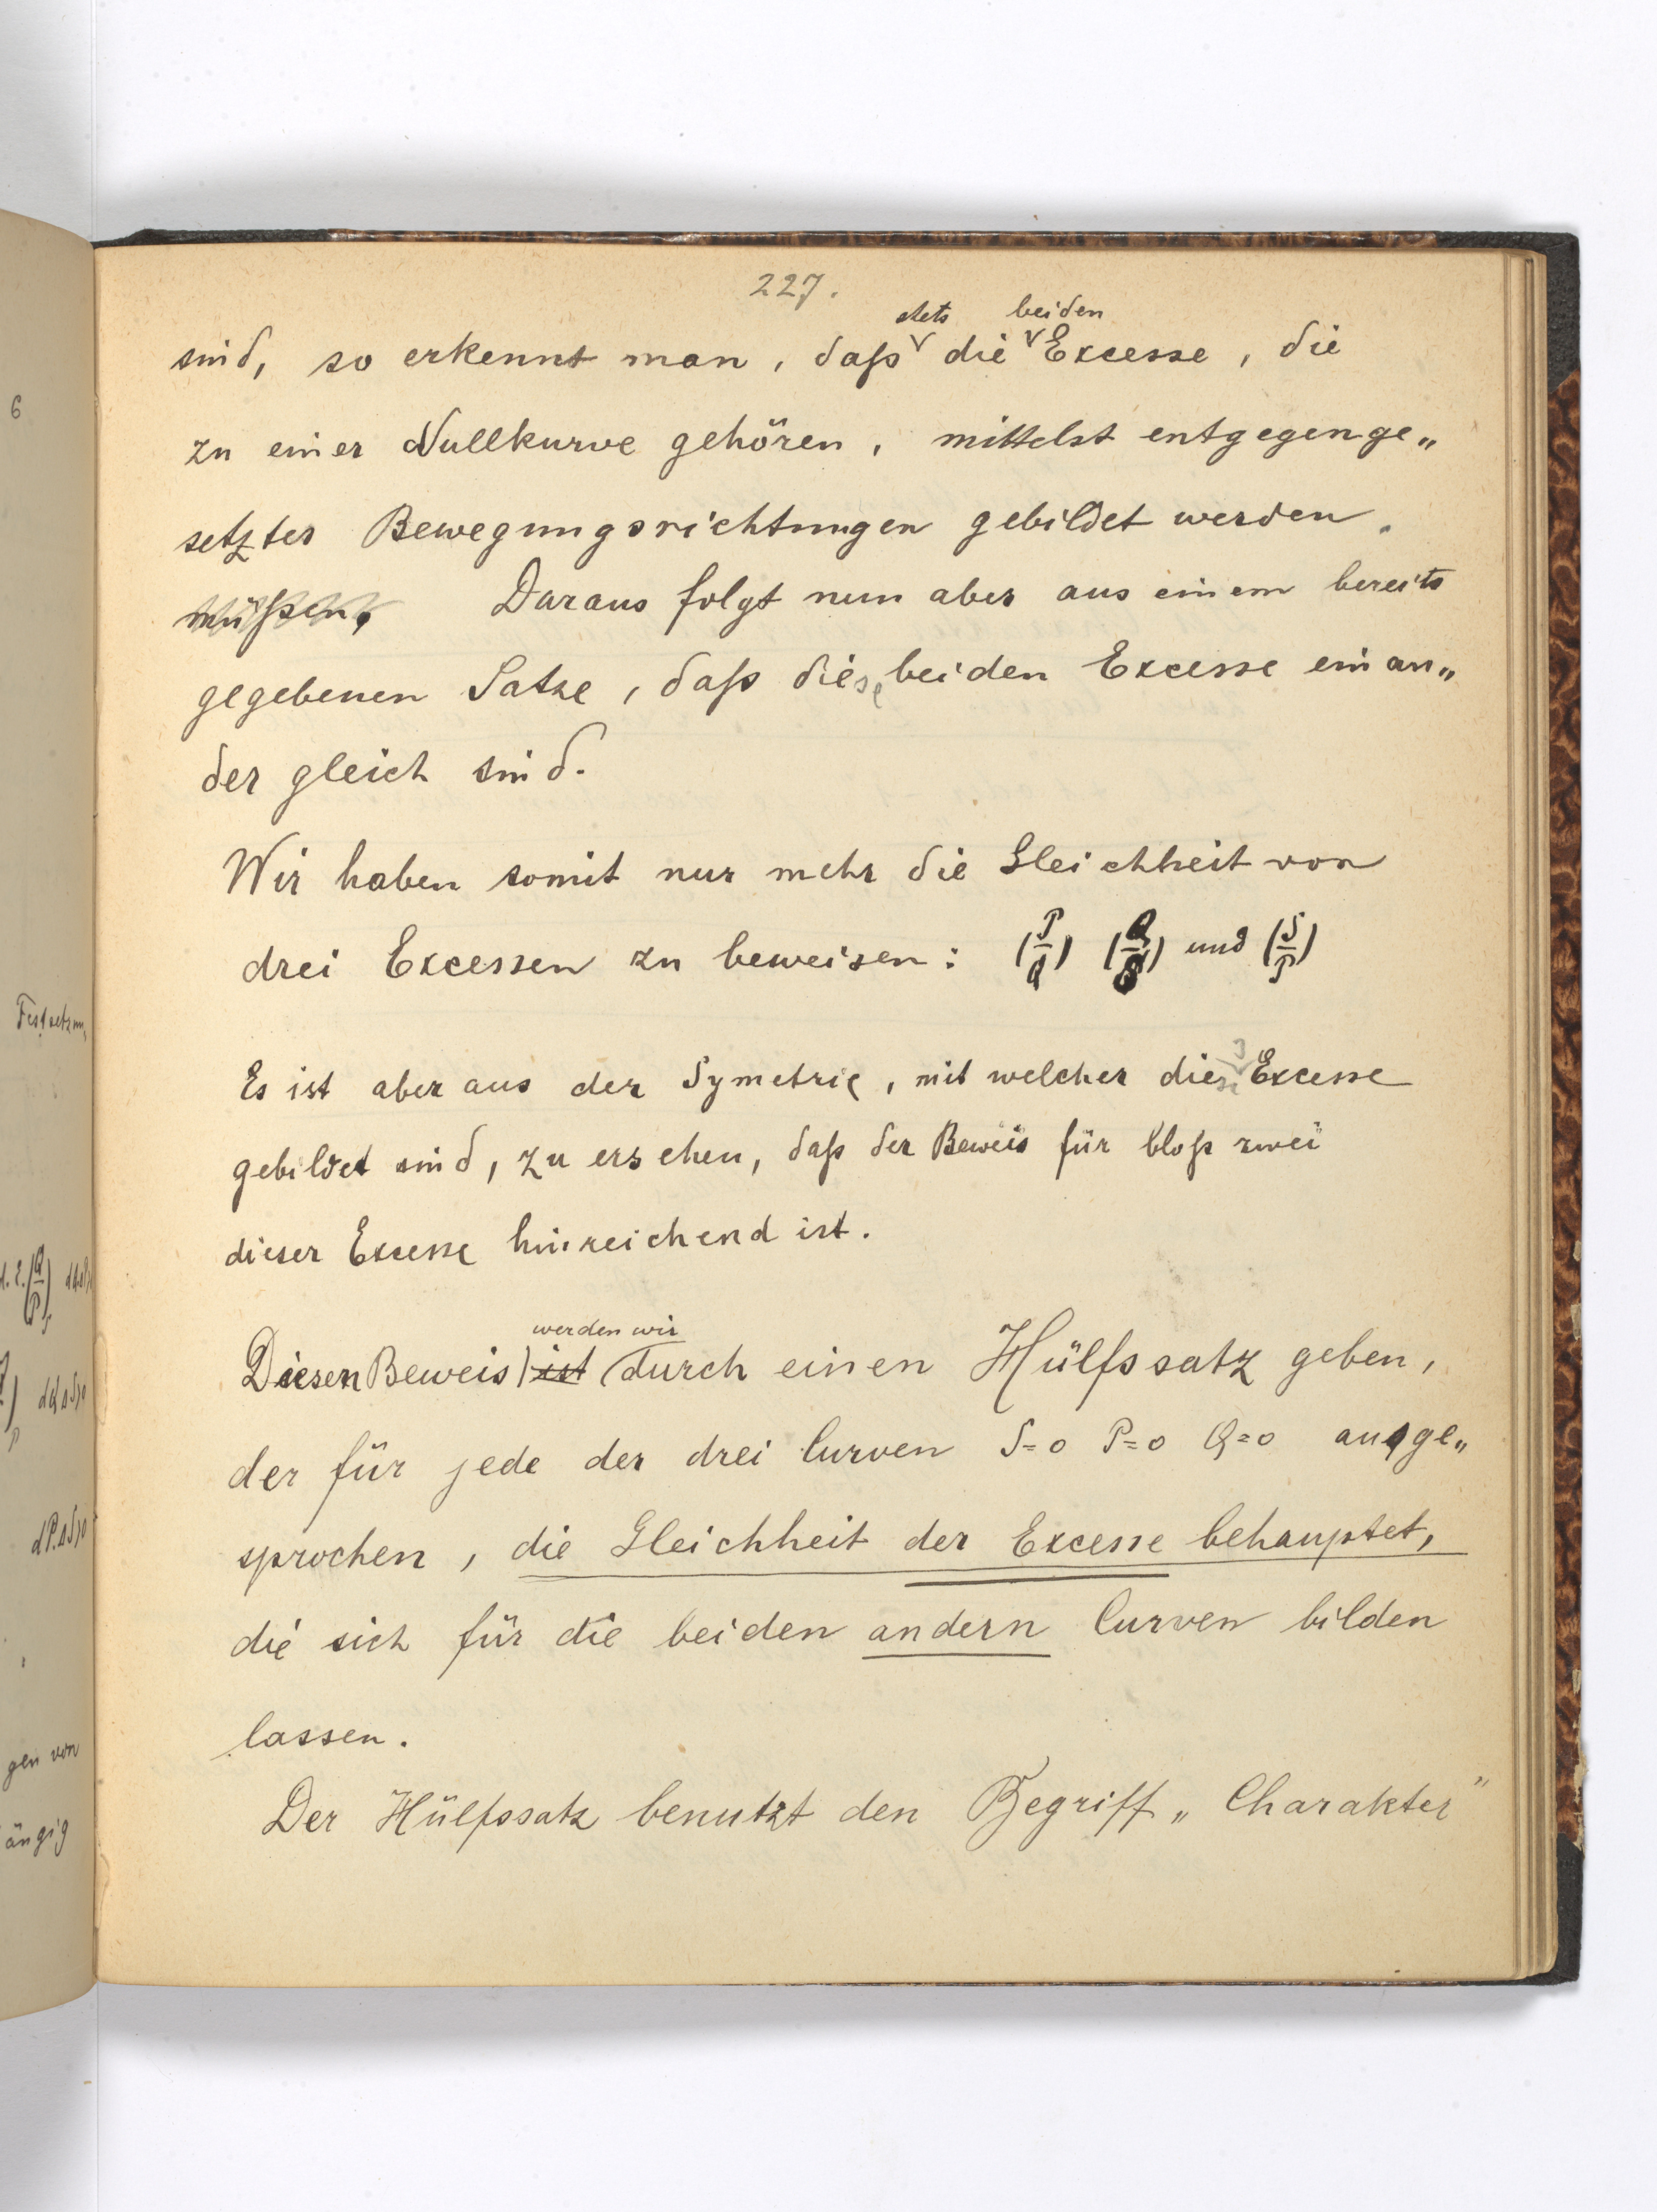 227.
sind, so erkennt man, daß stets die beiden Excesse, die
zu einer Nullkurve gehören, mittelst entgegenge„
setzter Bewegungsrichtungen gebildet werden.
müßen, Daraus folgt nun aber aus einem bereits
gegebenen Satze, daß diese beiden Excesse einan„
der gleich sind.
Wir haben somit nur mehr die Gleichheit von
drei Excessen zu beweisen: (P/Q) (Q/S) und (S/P)
Es ist aber aus der Symetrie, mit welcher diese 3 Excesse
gebildet sind, zu ersehen, daß der Beweis für bloß zwei
dieser Excesse hinreichend ist.
Diesen Beweis ist werden wir durch einen Hülfssatz geben,
der für jede der drei Curven S=0 P=0 Q=0 ausge„
sprochen, die Gleichheit der Excesse behauptet,
die sich für die beiden andern Curven bilden
lassen.
Der Hülfssatz benutzt den Begriff „Charakter"
6
Festsetzun
gen von
ängig